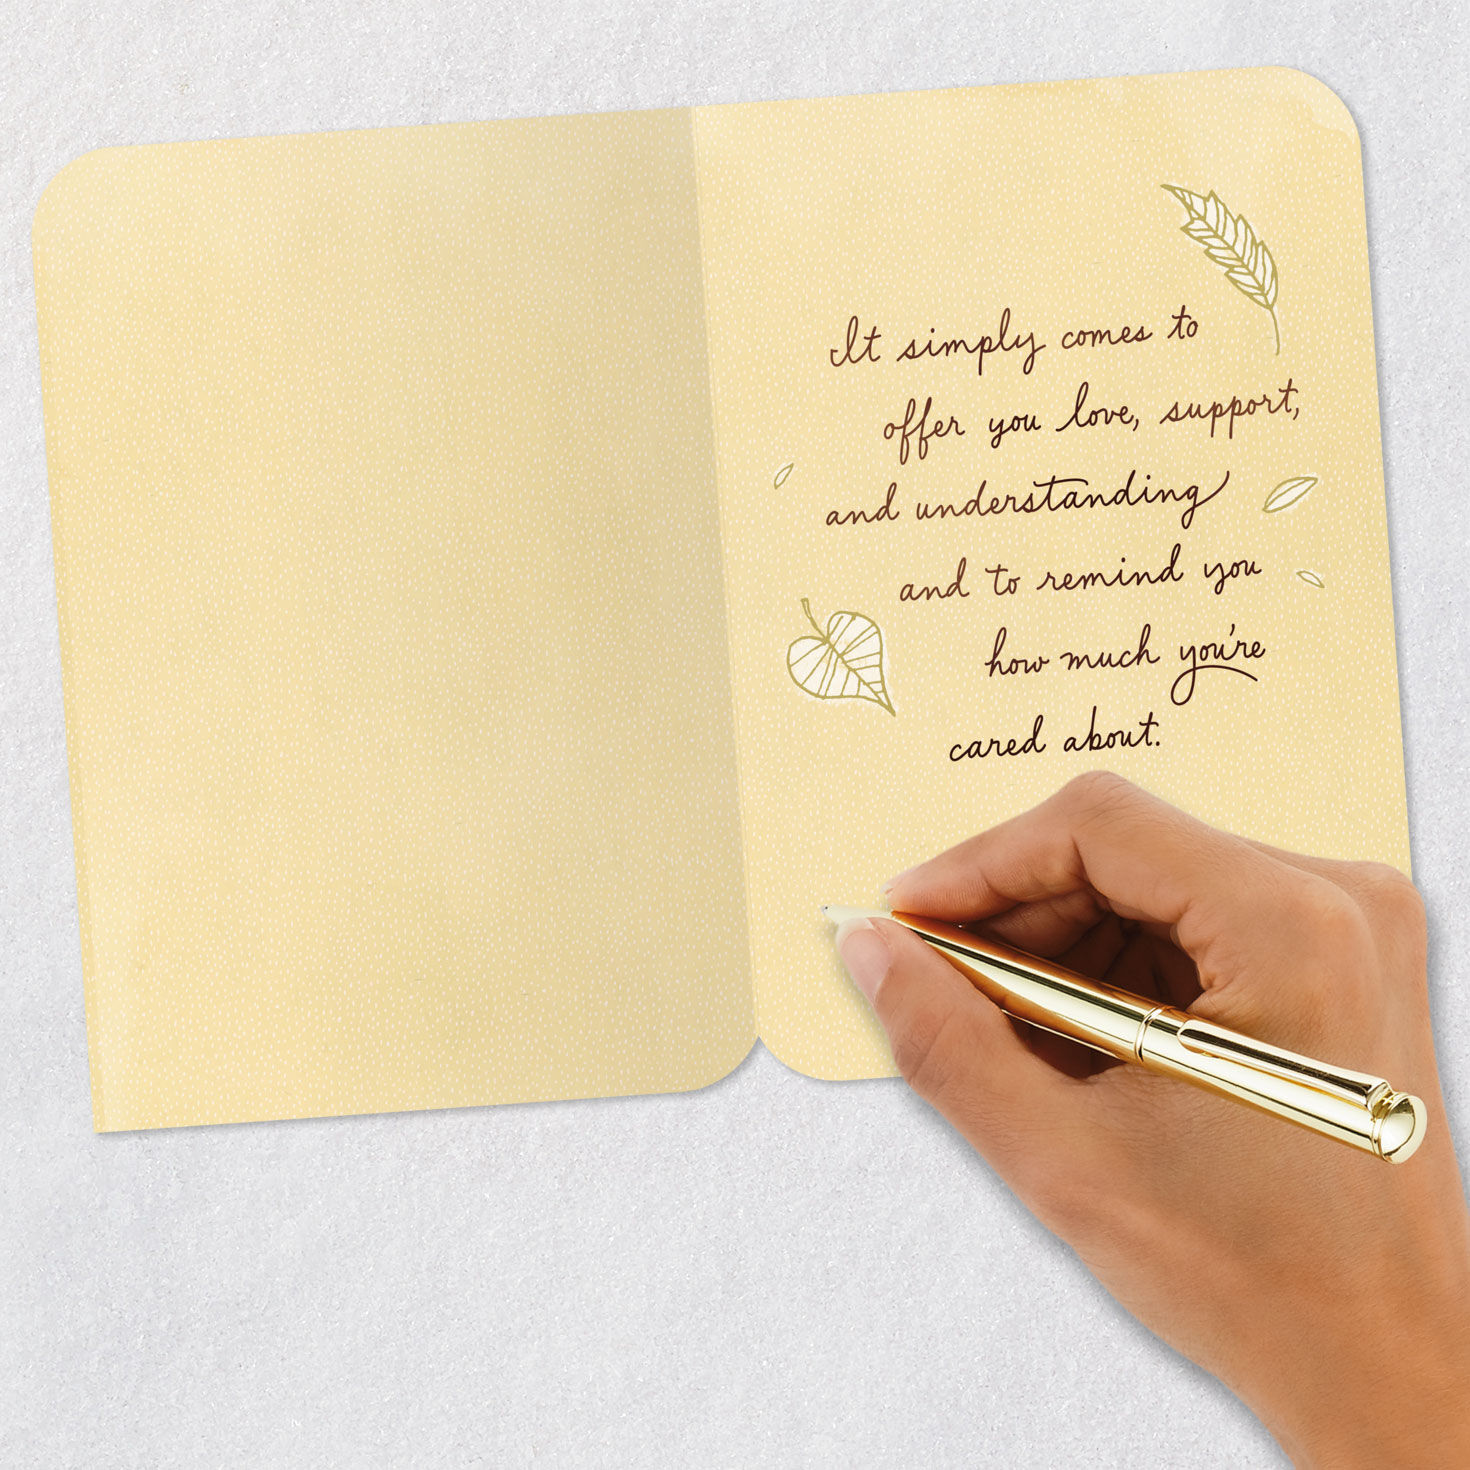 It simply comes to
offer you love, support,
and understanding
and to remind you
how much you're
cared about.